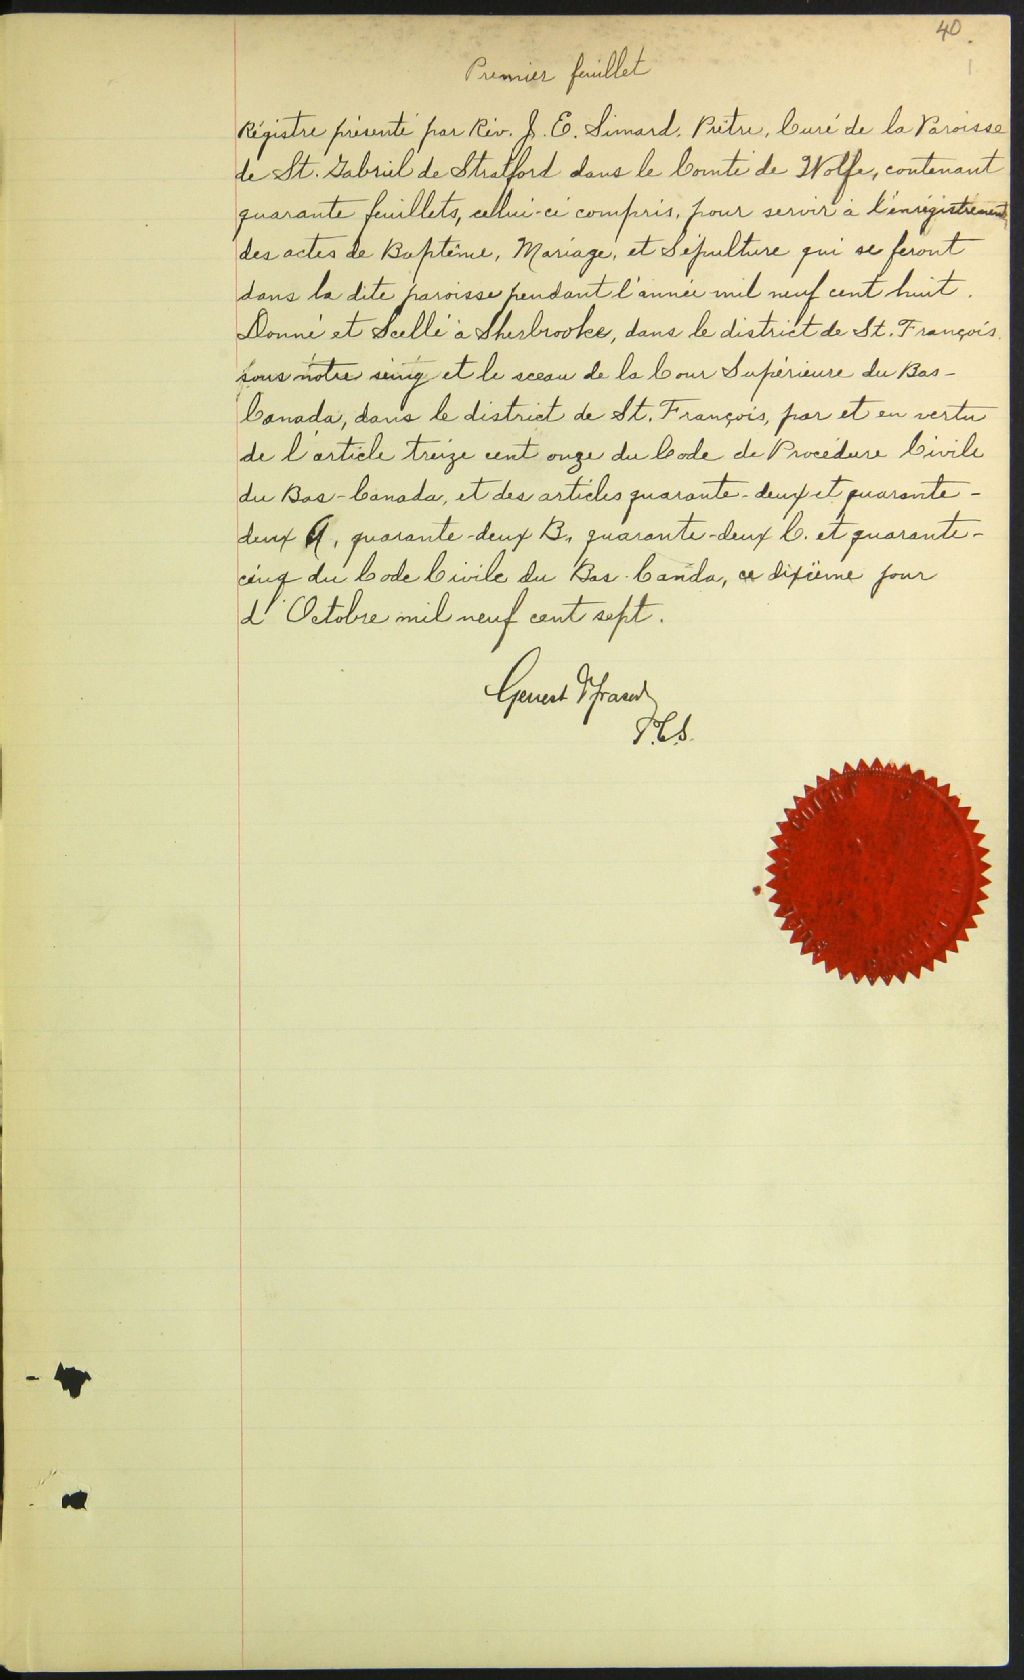 40
Premier feuillet
Régistre présenté par Rév. J. E. Simard. Prêtre, Curé de la Paroisse
de St. Gabriel de Stratford dans le Comté de Wolfe, contenant
quarante feuillets, cellui-ci compris, pour servir à l'énrégistrement
des actes de Baptême, Mariage, et Sépulture qui se feront
dans la dite paroisse pendant l'année mil neuf cent huit.
Donné et Scellé à Sherbrooke, dans le district de St. François.
sous notre seing et le sceau de la Cour Supérieure du Bas-
Canada, dans le district de St. François, par et en vertu
de l'article treize cent onze du Code de Procédure Civile
du Bas-Canada, et des articles quarante-deux et quarante-
deux A, quarante-deux B., quarante-deux C. et quarante-
cinq du Code Civile du Bas-Canda, ce dixième jour
d'Octobre mil neuf cent sept.
P.C.S.
COURT